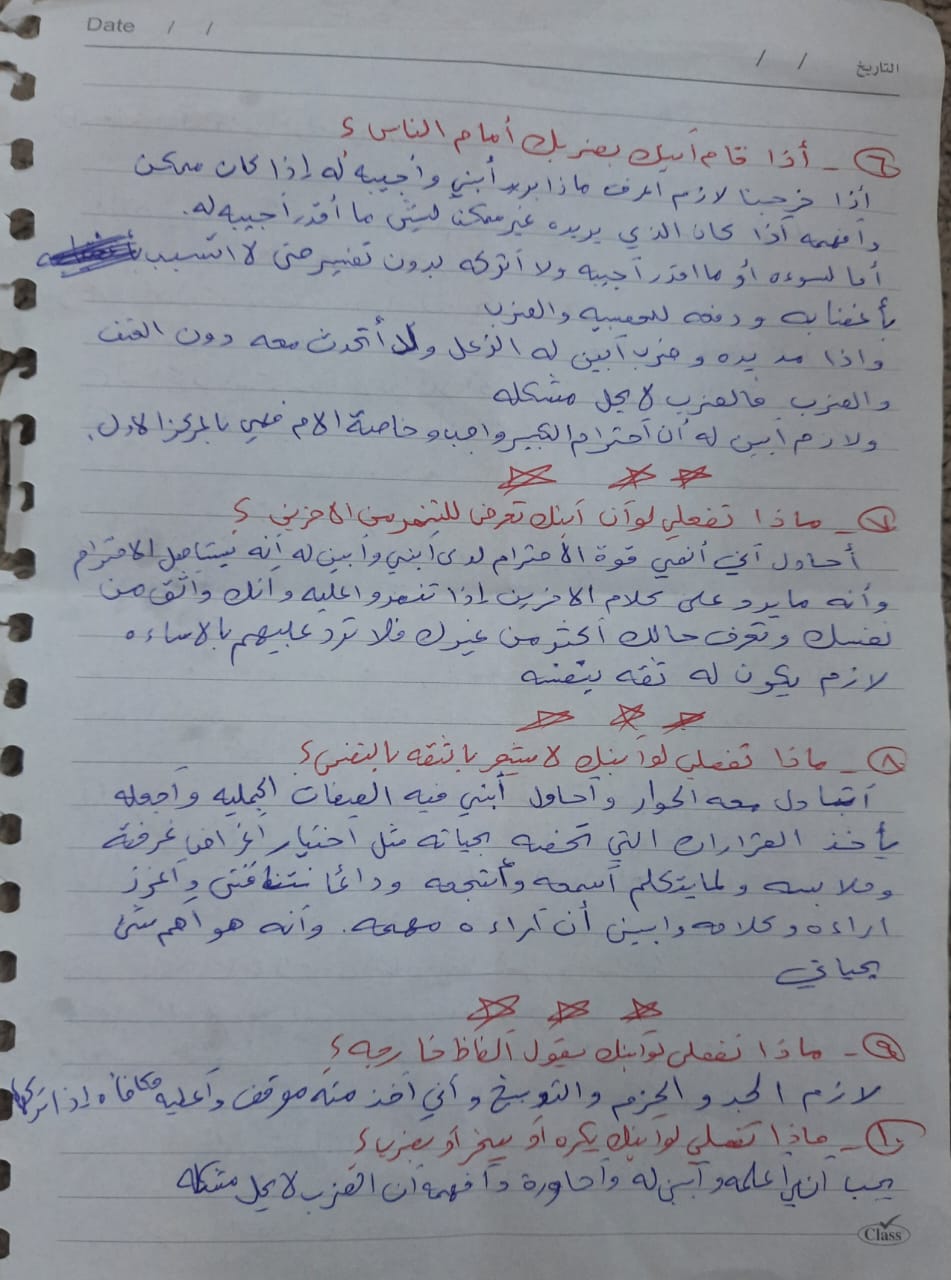 Date / /
التاريخ / /
٦ - أذا قام أبنك بضربك أمام الناس ؟
أذا خرجنا لازم اعرف ماذا يريد أبني وأجيبه له إذا كان ممكن
وأفهمه أذا كان الذي يريده غير ممكن ليش ما أقدر أجيبه له.
أما لسوءه أو ما اقدر أجيبه ولا أتركه بدون تفسير حتى لا اتسبب
بأغضابه ودفعه للعصبيه والضرب
واذا مد يده وضرب أبين له الزعل ولا أتحدث معه دون العنف
والضرب فالضرب لا يحل مشكله
ولازم أبين له أن أحترام الكبير واجب وخاصة الام فهي بالمركز الاول.
٧ - ماذا تفعلي لو أن أبنك تعرض للتنمر من الاخرين ؟
أحاول أني أنمي قوة الاحترام لدى أبني وأبين له أنه يستاهل الاحترام
وأنه ما يرد على كلام الاخرين إذا تنمروا عليه وأنك واثق من
نفسك وتعرف حالك أكثر من غيرك فلا ترد عليهم بالاساءه
لازم يكون له ثقه بنفسه
٨ - ماذا تفعلي لو أبنك لا يشعر بالثقه بالنفس ؟
أتبادل معه الحوار وأحاول أبني فيه الصفات الجميله وأجعله
يأخذ القرارات التي تخصه بحياته مثل أختيار أغراض غرفته
وملابسه ولما يتكلم أسمعه وأشجعه ودائما نتناقش وأعزز
اراءه وكلامه وابين أن آراءه مهمه. وأنه هو أهم شئ
بحياتي
٩ - ماذا تفعلي لو أبنك يقول ألفاظ خارجه ؟
لازم الجد و الحزم والتوبيخ و أني أخذ منه موقف وأعليه مكافأه إذا تركها
١٠ - ماذا تفعلي لو أبنك يكره أو يسخر أو يضرب ؟
يجب أن أعلمه وأبين له وأحاوره وأفهمه أن الضرب لا يحل مشكله
Class